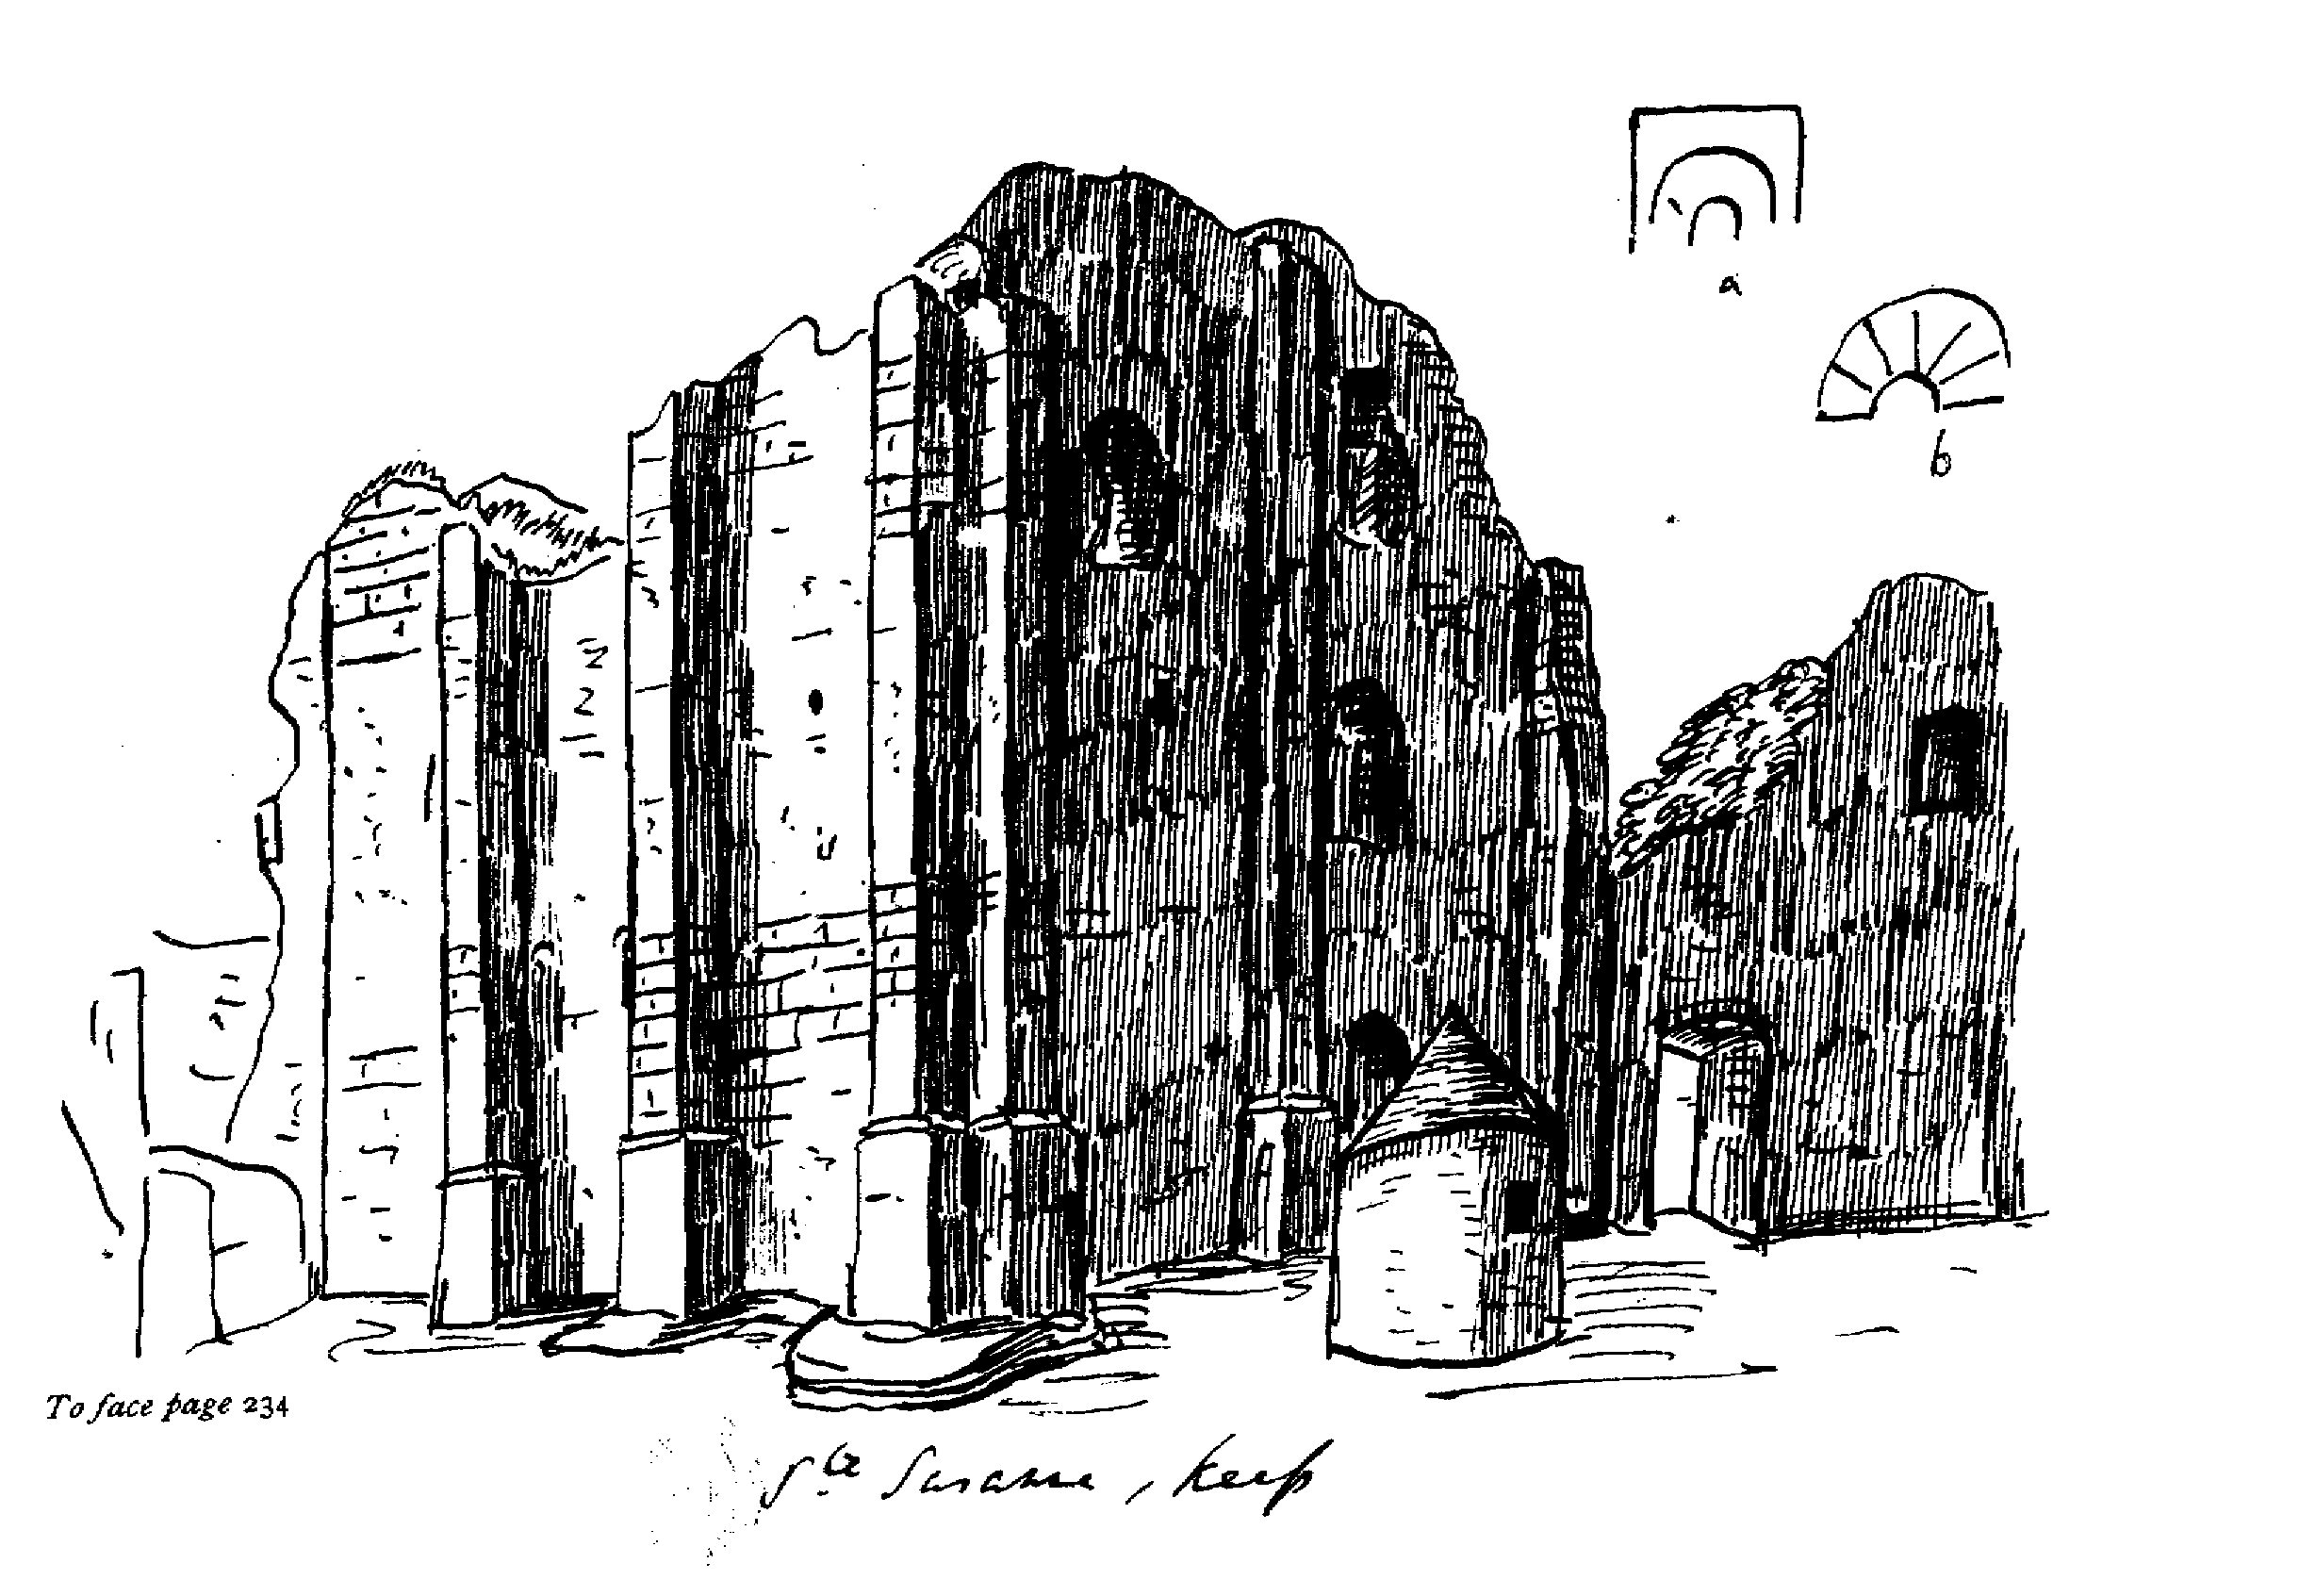 a
b
To face page 234
Ste Susanne, Keep